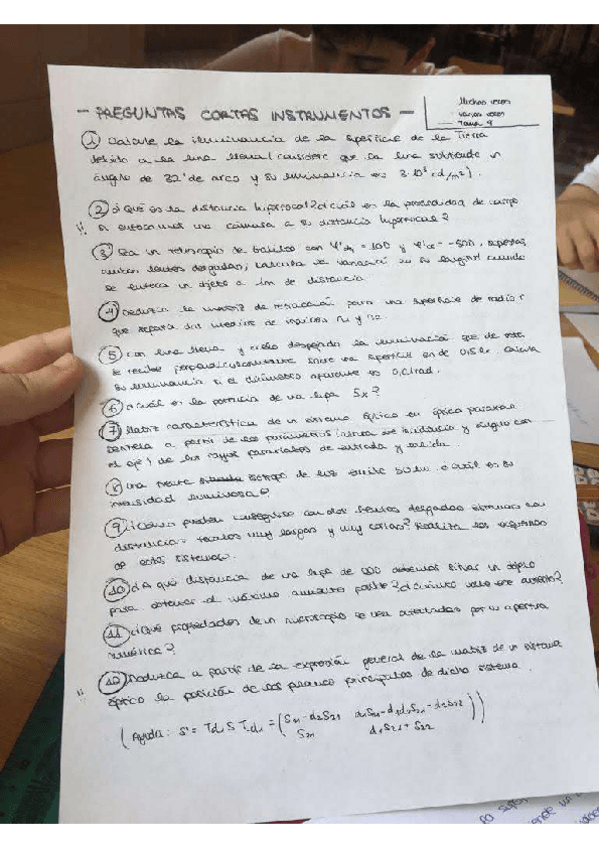 - PREGUNTAS CORTAS INSTRUMENTOS -
Muchas veces
Varias veces
Tema 9
1) Calcule la iluminancia de la superficie de la Tierra
debido a la luna llena (considere que la luna subtiende un
ángulo de 32' de arco y su luminancia es 3·10³ cd/m²).
2) ¿Qué es la distancia hiperfocal? ¿cuál es la profundidad de campo
al enfocar una cámara a su distancia hiperfocal?
3) Sea un telescopio de Galileo con φ'ob = 100 y φ'oc = -500,
lentes delgadas, calcula la variación en su longitud cuando
se enfoca un objeto a 1m de distancia.
4) Deduzca la matriz de refracción para una superficie de radio r
que separa dos medios de índices n1 y n2.
5) Con luna llena y cielo despejado la iluminación que de esta
se recibe perpendicularmente sobre una superficie es de 0,15 lx. Calcula
su luminancia si el diámetro aparente es 0,01rad.
6) ¿Cuál es la potencia de una lupa 5x?
7) Matriz característica de un sistema óptico en óptica paraxial.
a partir de los parámetros altura de incidencia y ángulo con
el eje, de los rayos paraxiales de entrada y salida.
8) Una fuente isótropa de luz emite 50 lm. ¿cuál es su
intensidad luminosa?
9) ¿Cómo pueden conseguirse con dos lentes delgadas sistemas con
distancias focales muy largas y muy cortas? Realiza los esquemas
de estos sistemas.
10) ¿A qué distancia de una lupa de debemos situar un objeto
para obtener el máximo aumento posible? ¿Cuánto vale ese aumento?
11) ¿Qué propiedades de un microscopio se ven afectadas por su apertura
numérica?
12) Deduzca a partir de la expresión general de la matriz de un sistema
óptico la posición de los planos principales de dicho sistema.
(Ayuda: S' = Td2 S Td1 = (S11 - d2S21 d1S11 - d1d2S21 - d2S22
S21 d1S21 + S22))